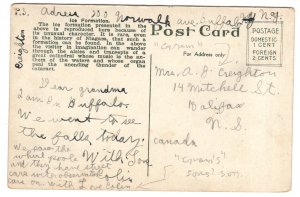 P.S. Adress 200 Norwalk ave. buffalo N.Y.
Ice Formation.
The ice formation presented in the
above is reproduced here because of
its unusual character. It is rare, even
in the history of Niagara, that such a
formation can be found. In the above
the visitor in imagination can wander
through the aisles and traceries of a
great cathedral whose music is the sobs
of the waters and whose organ
peal the unceasing anthem of the
waters.
Creighton
Post Card
"Gyrum"
POSTAGE
DOMESTIC
1 CENT
FOREIGN
2 CENTS
Dear grandma
I am in Buffalo.
We went to see
the falls today.
With Love
Colin
We pass the
people
and they have street
cars
on. With Love Colin
Mrs. A. J. Creighton
14 Mitchell St.
Halifax
N.S.
Canada
"Gyrum's
son? son.